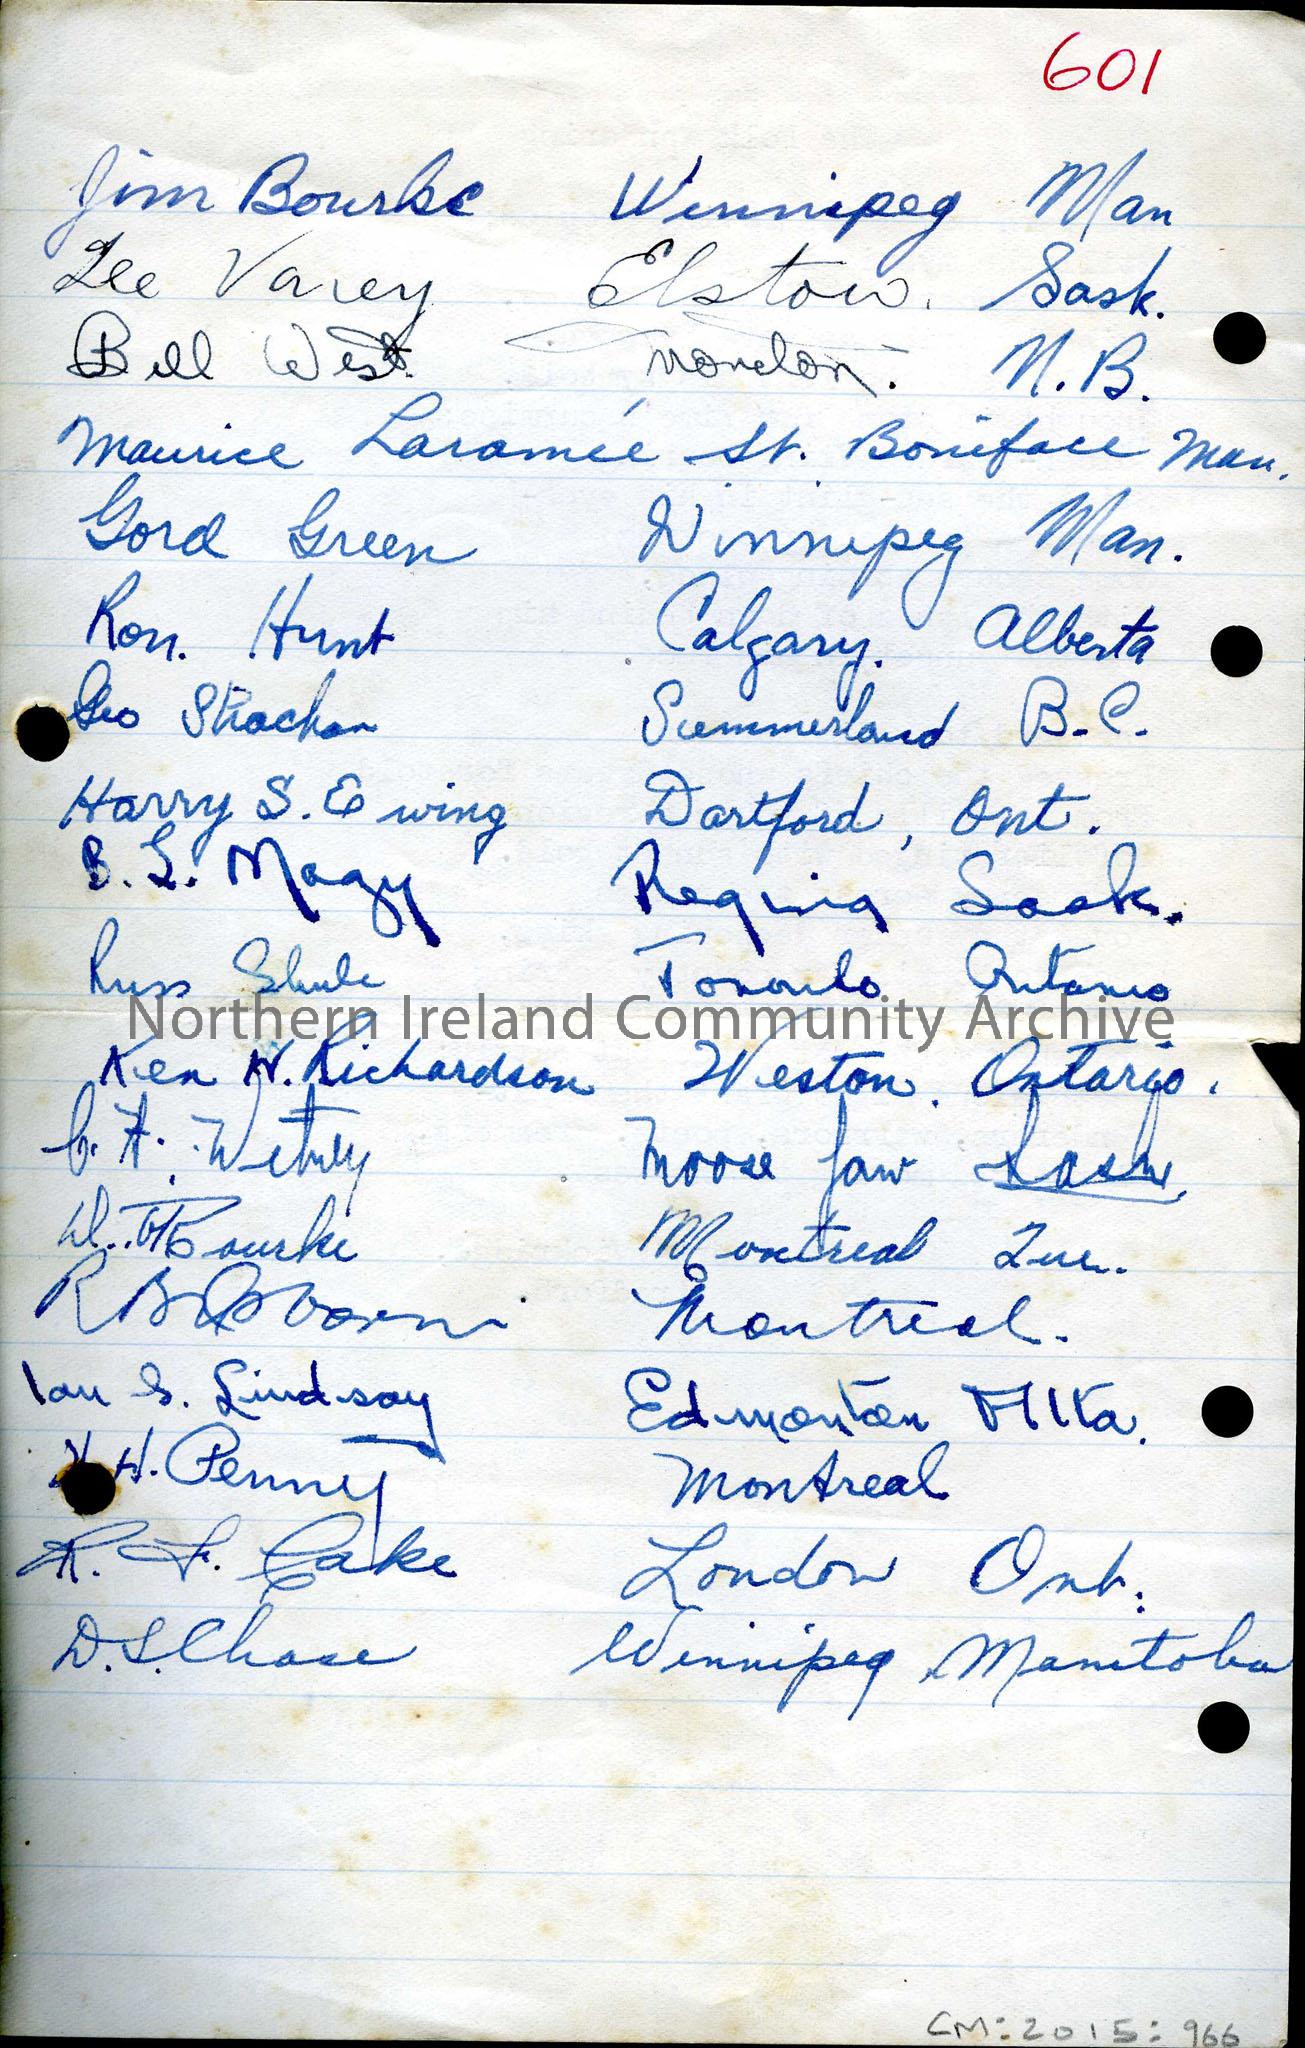 601
Jim Bourke Winnipeg Man
Lee Varey Elstow. Sask.
Bill West. Moncton. N.B.
Maurice Laramée St. Boniface Man.
Gord Green Winnipeg Man.
Ron. Hunt Calgary. Alberta
Geo Strachan Summerland B.C.
Harry S. Ewing Dartford, Ont.
B. L. Magy Regina Sask.
Russ Toronto Ontario
Northern Ireland Community Archive
Ken W. Richardson Weston. Ontario.
C. A. Moose Jaw Sask.
Rourke Montreal Que.
R B Osborn Montreal.
Ian G. Lindsay Edmonton Alta.
H. Penny Montreal
R. F. Cake London Ont.
D.S. Chase Winnipeg, Manitoba
CM:2015:966